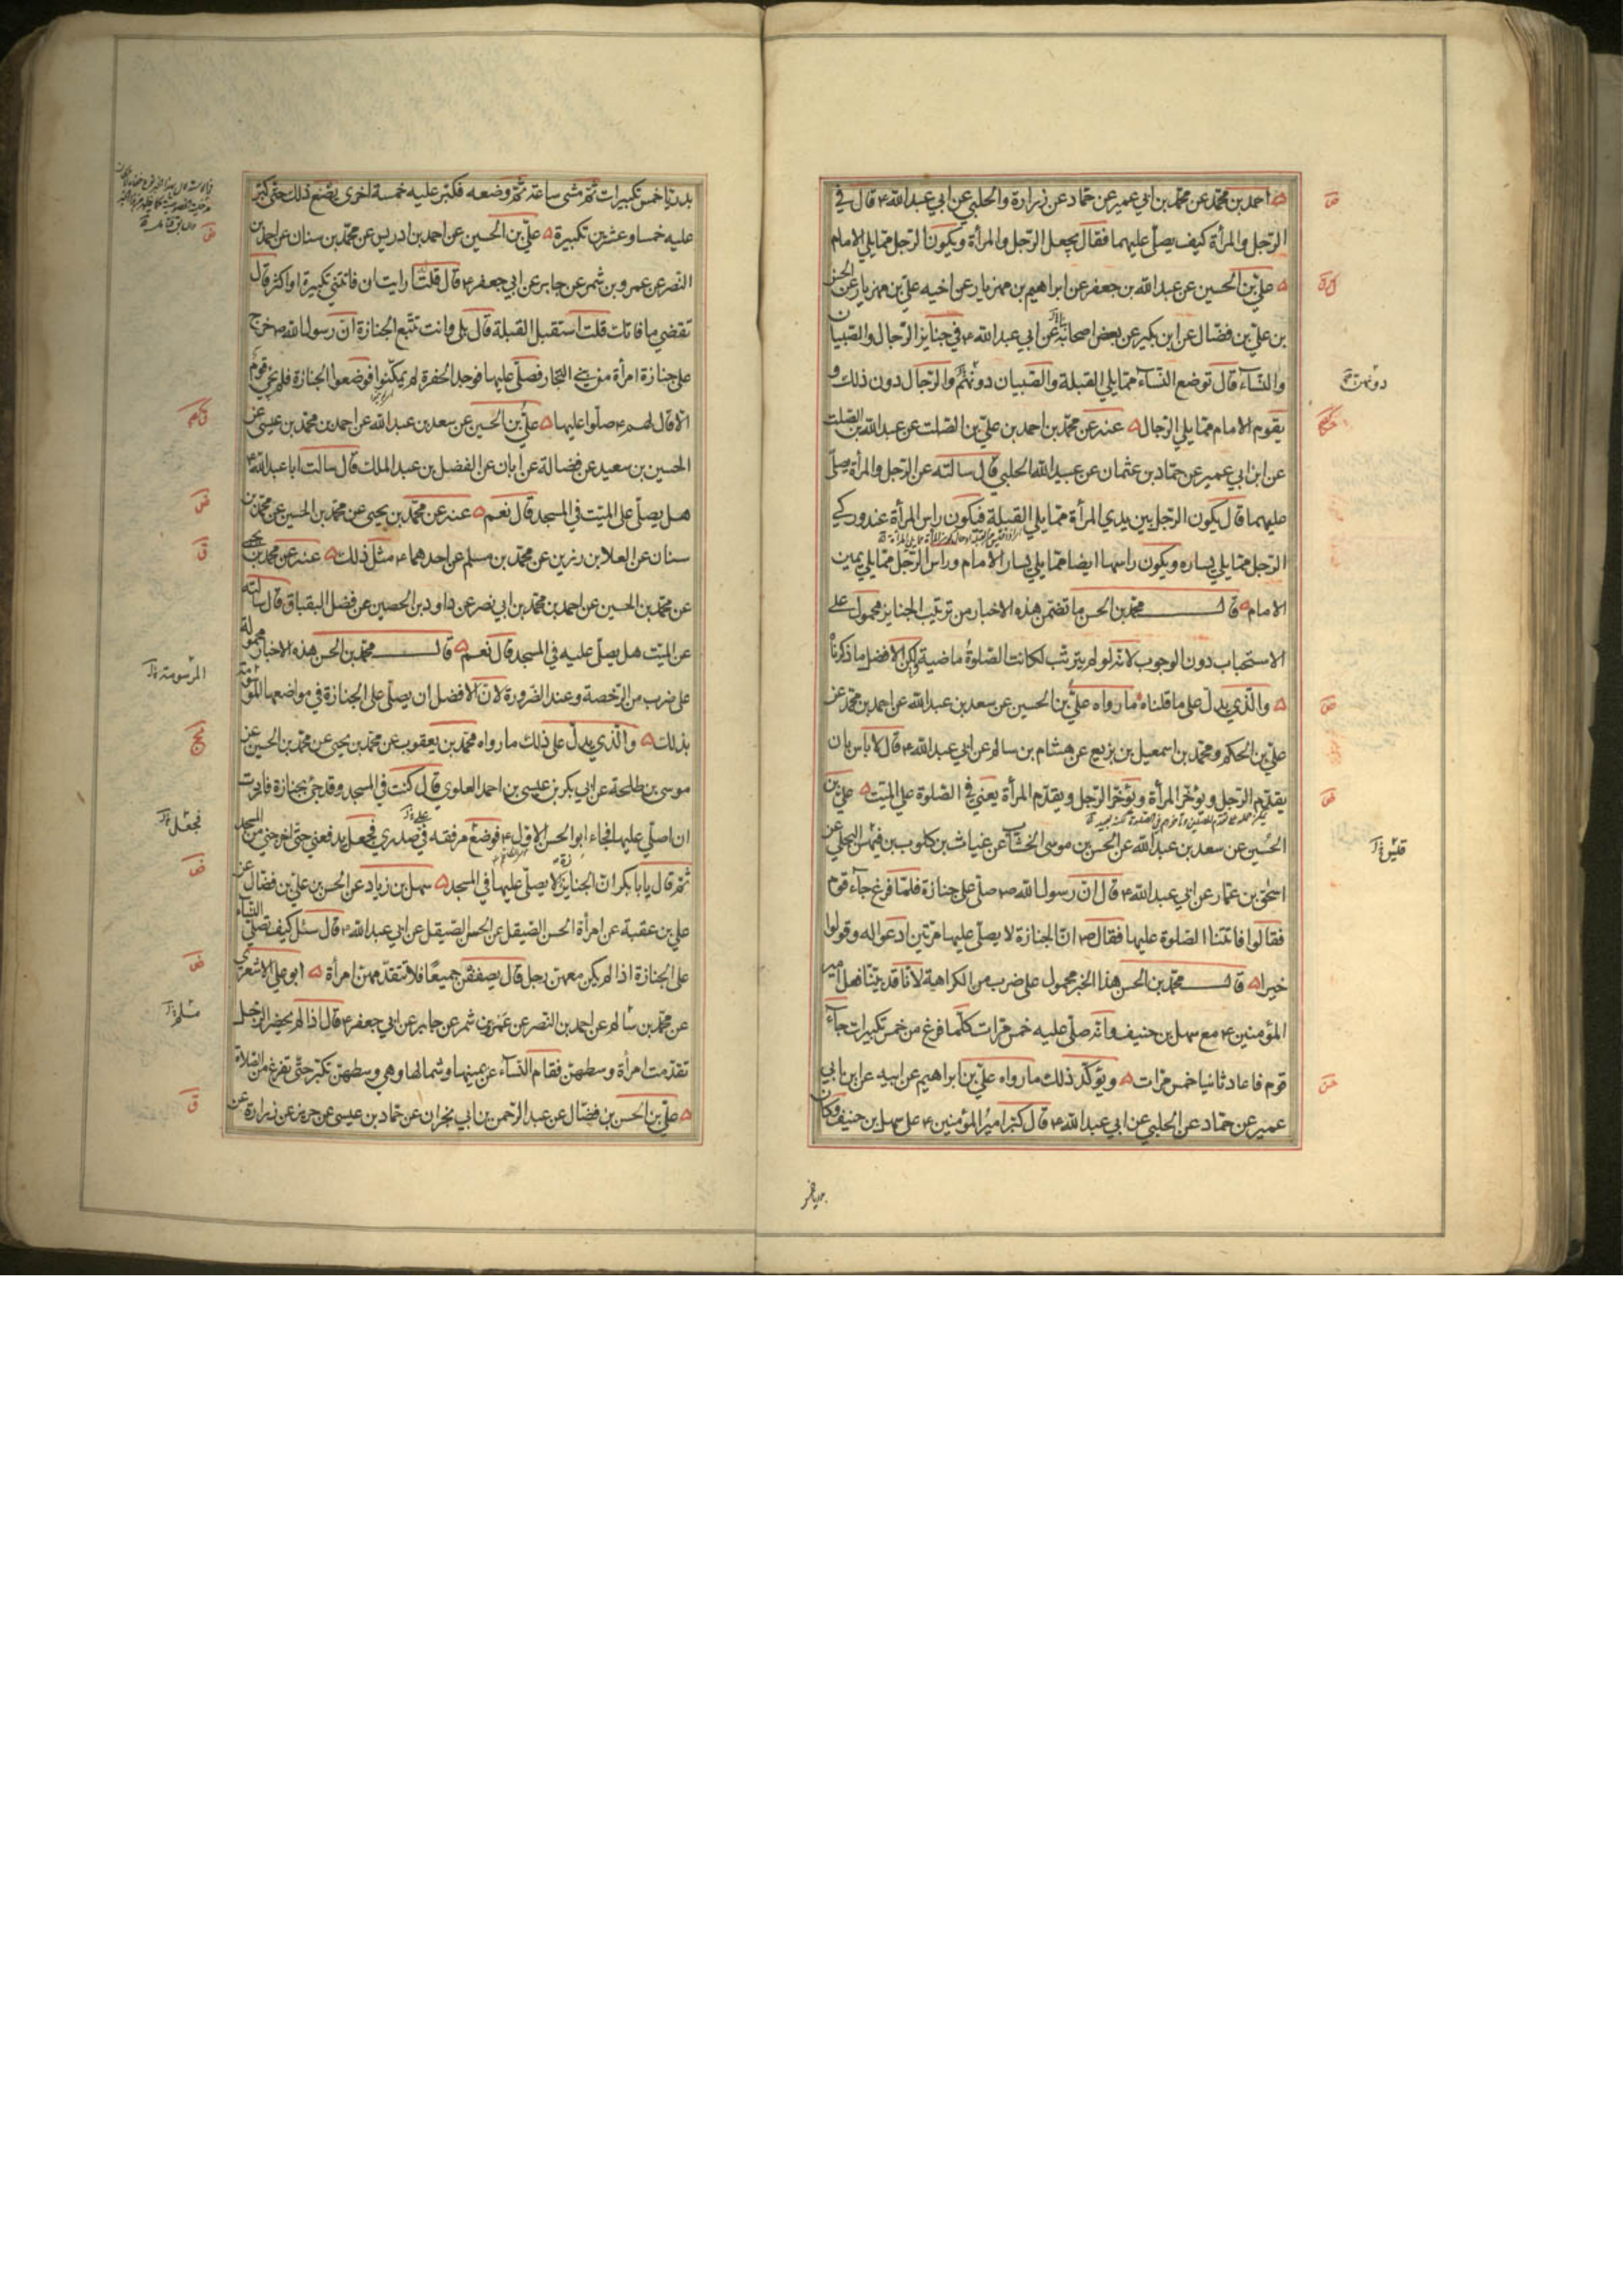 احمد بن محمد عن محمد بن ابي عمير عن حماد عن زرارة والحلبي عن ابي عبد الله ع قال في
الرجل والمرأة كيف يصلّى عليهما فقال يجعل الرجل والمرأة ويكون الرجل ممّا يلي الامام
علي بن الحسين عن عبد الله بن جعفر عن ابراهيم بن مهزيار عن اخيه علي بن مهزيار عن الحسن
بن علي بن فضال عن ابن بكير عن بعض اصحابنا عن ابي عبد الله ع في جنايز الرجال والصبيان
والنسآء قال توضع النسآء ممّا يلي القبلة والصبيان دونهم والرجال دون ذلك و
دونهن
يقوم الامام ممّا يلي الرجال عنه عن محمد بن احمد بن علي بن الصلت عن عبد الله بن الصلت
عن ابن ابي عمير عن حماد بن عثمان عن عبيد الله الحلبي قال سالته عن الرجل والمرأة يصلّى
عليهما قال يكون الرجل بين يدي المرأة ممّا يلي القبلة فيكون راس المرأة عند وركي
الرجل ممّا يلي يساره ويكون راسها ايضا ممّا يلي يسار الامام وراس الرجل ممّا يلي يمين
الامام قال محمد بن الحسن ما تضمن هذه الاخبار من ترتيب الجنايز محمول على
الاستحباب دون الوجوب لانه لو لم يترتب لكانت الصلوة ماضية ولكن الافضل ما ذكرناه
والّذي يدلّ على ما قلناه ما رواه علي بن الحسين عن سعد بن عبد الله عن احمد بن محمد عن
علي بن الحكم ومحمد بن اسمعيل بن بزيع عن هشام بن سالم عن ابي عبد الله ع قال لا باس بان
يقدّم الرجل ويؤخّر المرأة ويؤخّر الرجل ويقدّم المرأة يعني في الصلوة على الميّت علي بن
الحسين عن سعد بن عبد الله عن الحسن بن موسى الخشاب عن غياث بن كلوب بن فيهس البجلي عن
اسحق بن عمار عن ابي عبد الله ع قال ان رسول الله ص صلّى على جنازة فلمّا فرغ جآءه قوم
فقالوا فاتتنا الصلوة عليها فقال ص انّ الجنازة لا يصلّى عليها مرّتين ادعوا له وقولوا
خيرا قال محمد بن الحسن هذا الخبر محمول على ضرب من الكراهية لانّا قد بيّنّا فعل امير
المؤمنين ع مع سهل بن حنيف وانه صلّى عليه خمس مرّات كلّما فرغ من خمس تكبيرات جآء
قوم فاعاد ثانيا خمس مرّات ويؤكّد ذلك ما رواه علي بن ابراهيم عن ابيه عن ابن ابي
عمير عن حماد عن الحلبي عن ابي عبد الله ع قال كبّر امير المؤمنين ع على سهل بن حنيف وكان
بدريّا خمس تكبيرات ثمّ مشى ساعة ثمّ وضعه فكبّر عليه خمسة اخرى يصنع ذلك حتّى كبّر
عليه خمسا وعشرين تكبيرة علي بن الحسين عن احمد بن ادريس عن محمد بن سنان عن احمد بن
النضر عن عمرو بن شمر عن جابر عن ابي جعفر ع قال قلت ارايت ان فاتتني تكبيرة او اكثر قال
تقضي ما فاتك قلت استقبل القبلة قال بلى وانت تتبع الجنازة انّ رسول الله ص خرج
على جنازة امرأة من بني النجار فصلّى عليها فوجد الحفرة لم يمكّنوا فوضعوا الجنازة فلم يجئ قوم
الا قال لهم ع صلّوا عليها علي بن الحسين عن سعد بن عبد الله عن احمد بن محمد بن عيسى عن
الحسين بن سعيد عن فضالة عن ابان عن الفضل بن عبد الملك قال سالت ابا عبد الله ع
هل يصلّى على الميّت في المسجد قال نعم عنه عن محمد بن يحيى عن محمد بن الحسين عن محمد بن
سنان عن العلا بن رزين عن محمد بن مسلم عن احدهما ع مثل ذلك عنه عن محمد بن يحيى
عن محمد بن الحسين عن احمد بن محمد بن ابي نصر عن داود بن الحصين عن فضل البقباق قال سالته
عن الميّت هل يصلّى عليه في المسجد قال نعم قال محمد بن الحسن هذه الاخبار محمولة
على ضرب من الرّخصة وعند الضرورة لانّ الافضل ان يصلّى على الجنازة في مواضعها
المرسومة
بذلك والّذي يدلّ على ذلك ما رواه محمد بن يعقوب عن محمد بن يحيى عن محمد بن الحسين عن
موسى بن طلحة عن ابي بكر بن عيسى بن احمد العلوي قال كنت في المسجد وقد جئ بجنازة فاردت
ان اصلّي عليها فجاء ابو الحسن الاول ع فوضع مرفقه في صدري فجعل يدفعني حتّى اخرجني من المسجد
فجعل
ثمّ قال يا ابا بكر ان الجنايز لا يصلّى عليها في المسجد سهل بن زياد عن الحسن بن علي بن فضال عن
علي بن عقبة عن امرأة الحسن الصيقل عن الحسن الصيقل عن ابي عبد الله ع قال سئل كيف تصلّي النساء
على الجنازة اذا لم يكن معهن رجل قال يصففن جميعًا فلا تتقدّمهن امرأة ابو علي الاشعري
عن محمد بن سالم عن احمد بن النضر عن عمرو بن شمر عن جابر عن ابي جعفر ع قال اذا لم يحضر الرجل
تقدّمت امرأة وسطهنّ فقام النسآء عن يمينها وشمالها وهي وسطهنّ تكبّر حتّى تفرغ من الصلاة
علي بن الحسن بن فضّال عن عبد الرحمن بن ابي نجران عن حماد بن عيسى عن حريز عن زرارة عن